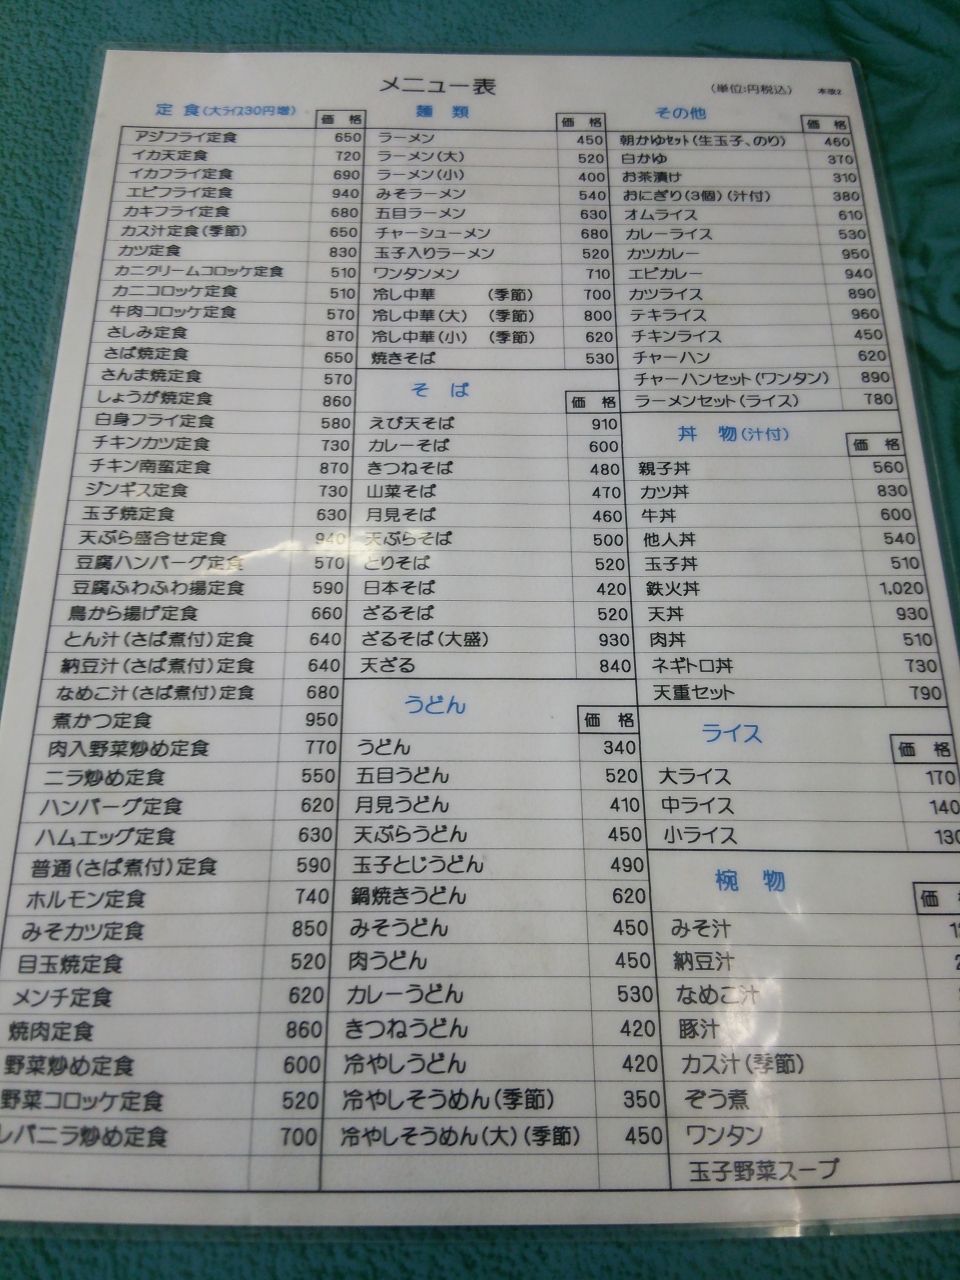 メニュー表
(単位:円税込)
本改2
定 食(大ライス30円増)
価 格
アジフライ定食 650
イカ天定食 720
イカフライ定食 690
エビフライ定食 940
カキフライ定食 680
カス汁定食(季節) 650
カツ定食 830
カニクリームコロッケ定食 510
カニコロッケ定食 510
牛肉コロッケ定食 570
さしみ定食 870
さば焼定食 650
さんま焼定食 570
しょうが焼定食 860
白身フライ定食 580
チキンカツ定食 730
チキン南蛮定食 870
ジンギス定食 730
玉子焼定食 630
天ぷら盛合せ定食 940
豆腐ハンバーグ定食 570
豆腐ふわふわ揚定食 590
鳥から揚げ定食 660
とん汁(さば煮付)定食 640
納豆汁(さば煮付)定食 640
なめこ汁(さば煮付)定食 680
煮かつ定食 950
肉入野菜炒め定食 770
ニラ炒め定食 550
ハンバーグ定食 620
ハムエッグ定食 630
普通(さば煮付)定食 590
ホルモン定食 740
みそカツ定食 850
目玉焼定食 520
メンチ定食 620
焼肉定食 860
野菜炒め定食 600
野菜コロッケ定食 520
レバニラ炒め定食 700
麺 類
価 格
ラーメン 450
ラーメン(大) 520
ラーメン(小) 400
みそラーメン 540
五目ラーメン 630
チャーシューメン 680
玉子入りラーメン 520
ワンタンメン 710
冷し中華 (季節) 700
冷し中華(大) (季節) 800
冷し中華(小) (季節) 620
焼きそば 530
そ ば
価 格
えび天そば 910
カレーそば 600
きつねそば 480
山菜そば 470
月見そば 460
天ぷらそば 500
とりそば 520
日本そば 420
ざるそば 520
ざるそば(大盛) 930
天ざる 840
うどん
価 格
うどん 340
五目うどん 520
月見うどん 410
天ぷらうどん 450
玉子とじうどん 490
鍋焼きうどん 620
みそうどん 450
肉うどん 450
カレーうどん 530
きつねうどん 420
冷やしうどん 420
冷やしそうめん(季節) 350
冷やしそうめん(大)(季節) 450
その他
価 格
朝かゆセット(生玉子、のり) 460
白かゆ 370
お茶漬け 310
おにぎり(3個)(汁付) 380
オムライス 610
カレーライス 530
カツカレー 950
エビカレー 940
カツライス 890
テキライス 960
チキンライス 450
チャーハン 620
チャーハンセット(ワンタン) 890
ラーメンセット(ライス) 780
丼 物(汁付)
価 格
親子丼 560
カツ丼 830
牛丼 600
他人丼 540
玉子丼 510
鉄火丼 1,020
天丼 930
肉丼 510
ネギトロ丼 730
天重セット 790
ライス
価 格
大ライス 170
中ライス 140
小ライス 130
椀 物
価
みそ汁
納豆汁
なめこ汁
豚汁
カス汁(季節)
ぞう煮
ワンタン
玉子野菜スープ